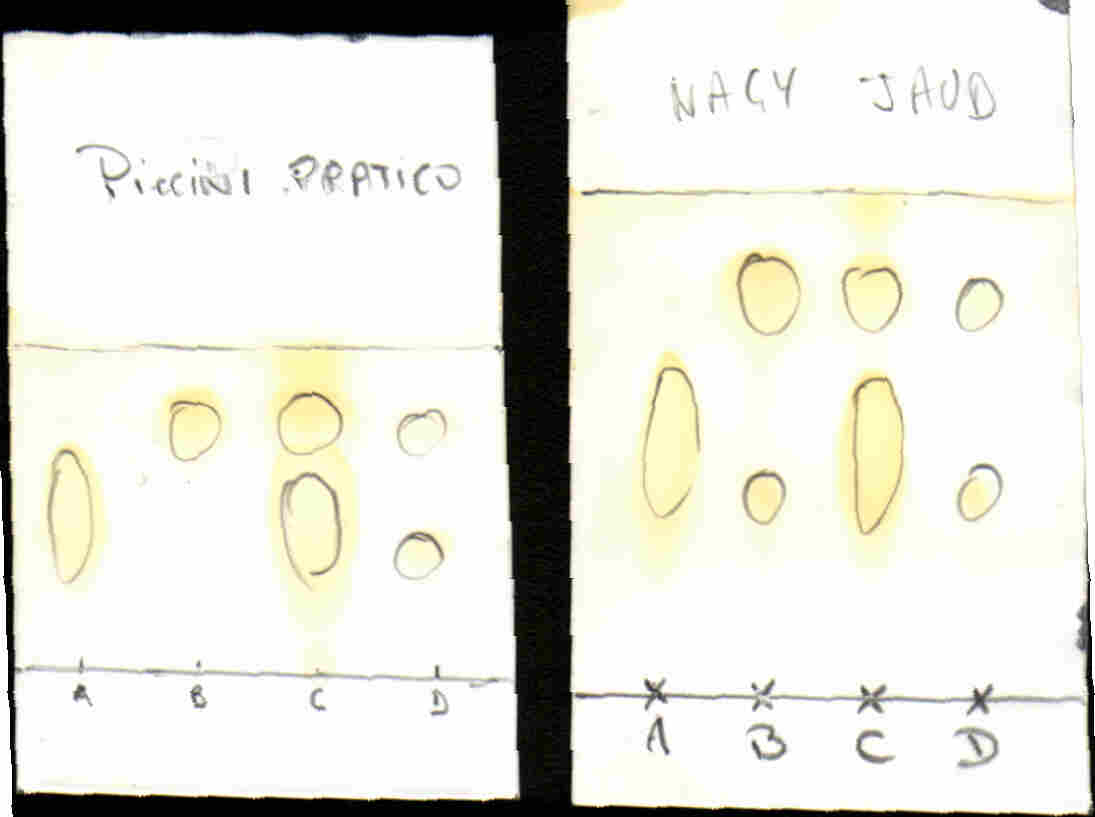 Piccini PRATICO
A B C D
NAGY JAUD
A B C D